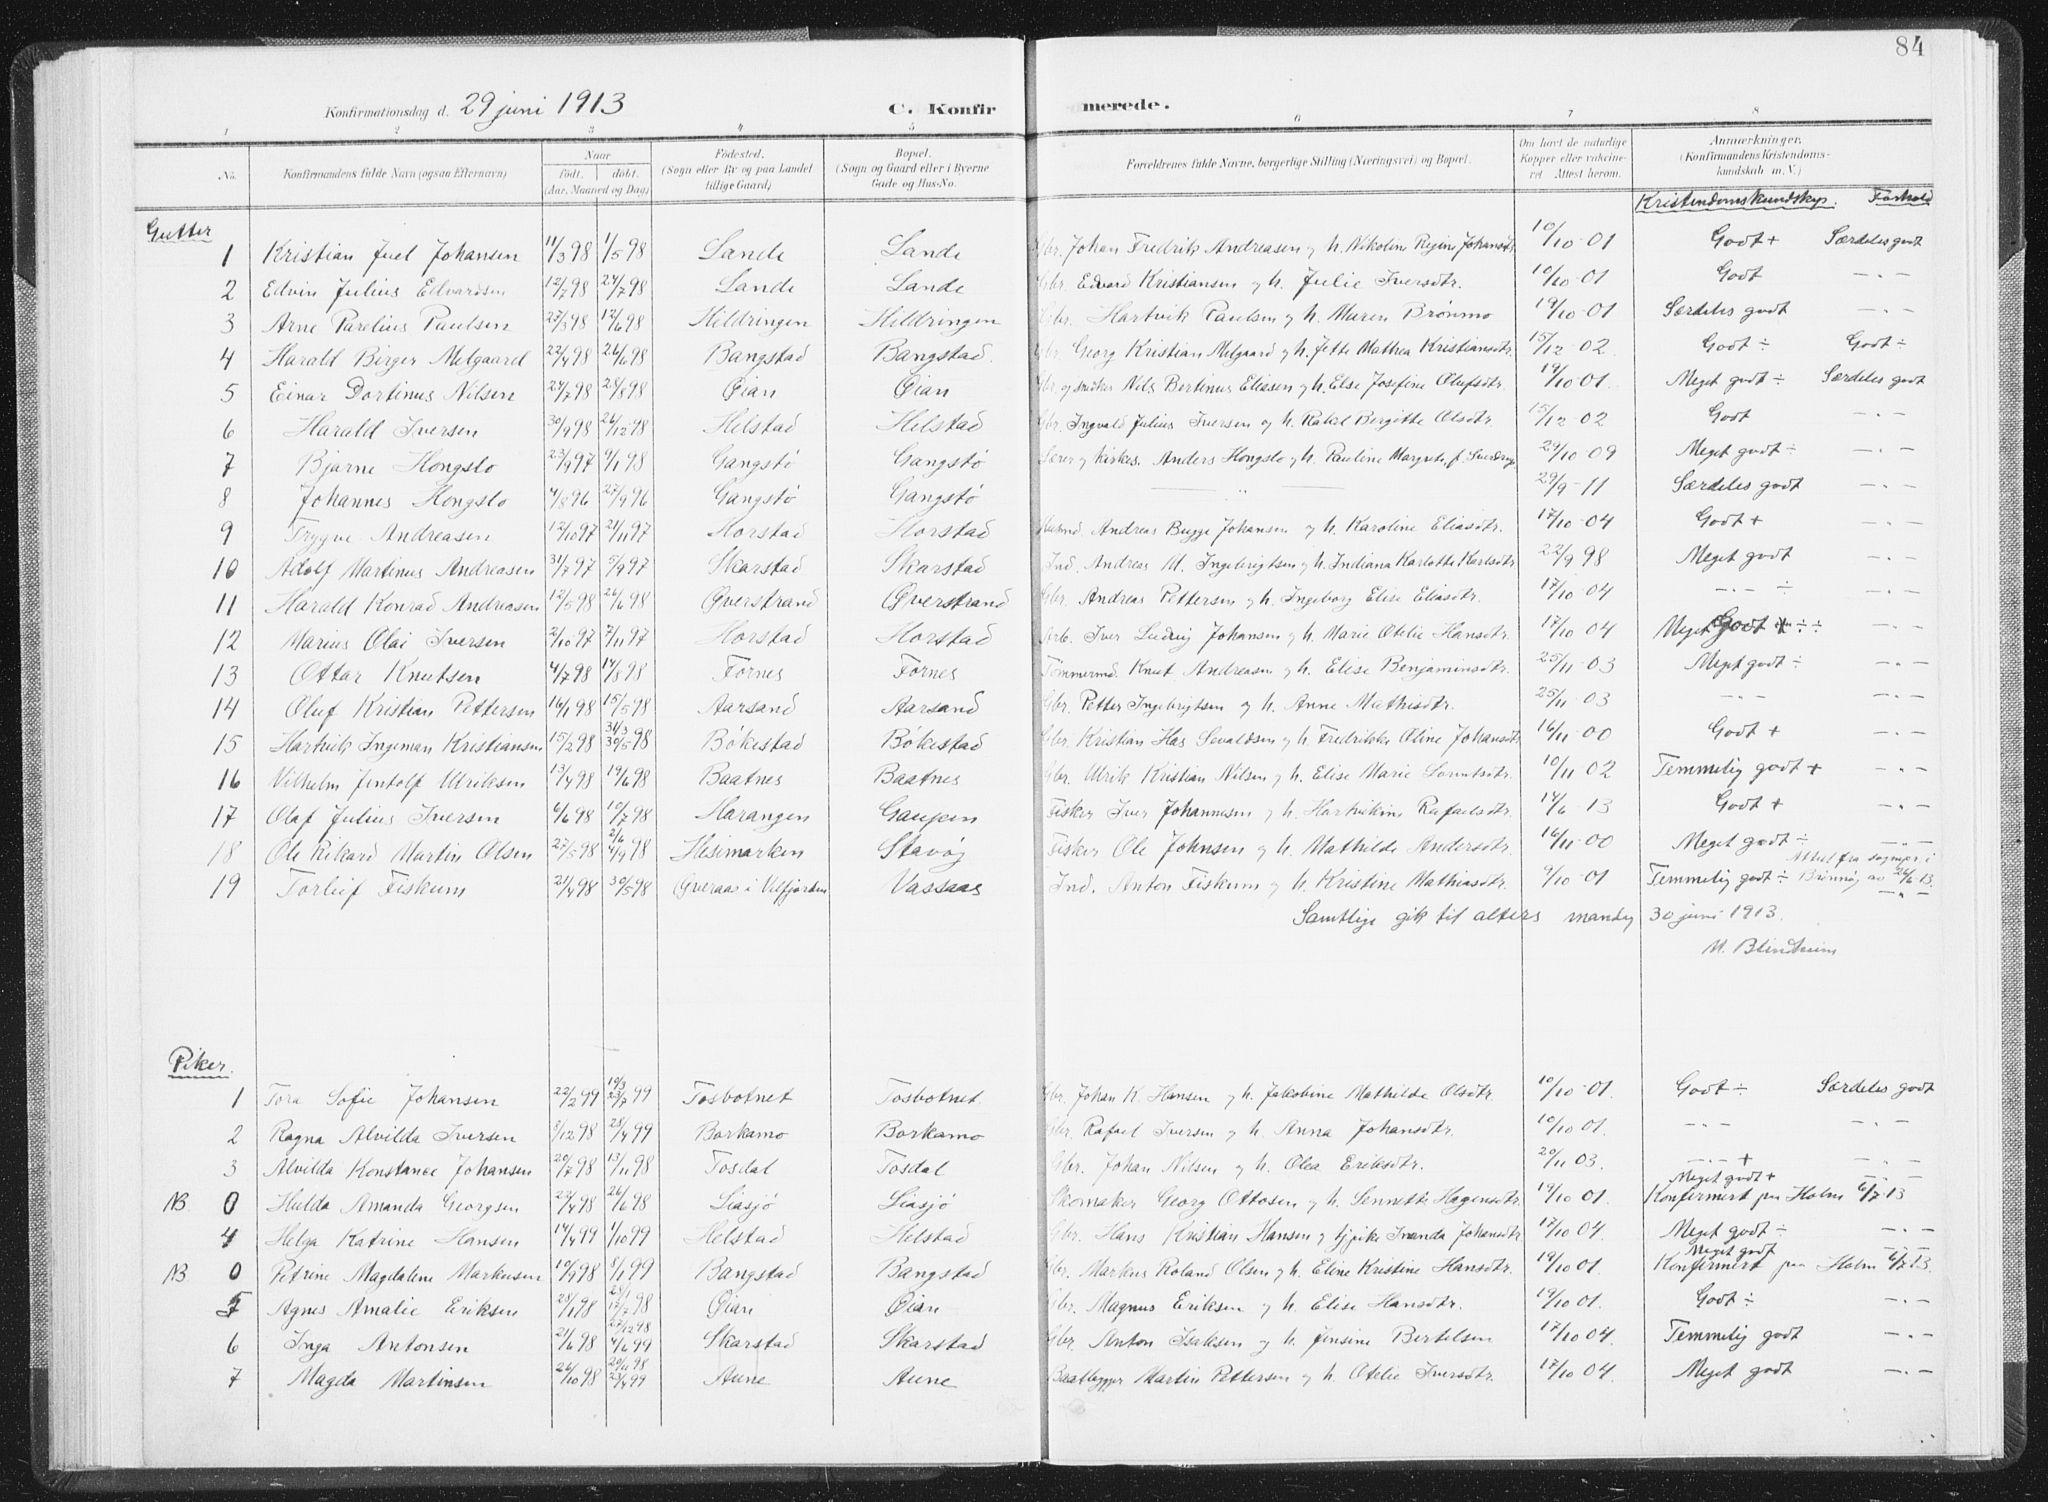 84
Konfirmationsdag d. 29 juni 1913 C. Konfirmerede.
1 2 3 4 5 6 7 8
No. Konfirmandens fulde Navn (ogsaa Efternavn) Naar født. døbt. (Aar, Maaned og Dag) Fødested. (Sogn eller By og paa Landet tillige Gaard) Bopæl. (Sogn og Gaard eller i Byerne Gade og Hus-No. Forældrenes fulde Navne, borgerlige Stilling (Næringsvei) og Bopæl. Om havt de naturlige Kopper eller vakcineret. Attest herom. Anmærkninger. (Konfirmandens Kristendomskundskab m. V.)
Kristendomskundskap. Forhold
Gutter
1 Kristian Juel Johansen 11/3 98 1/5 98 Lande Lande Gbr. Johan Fredrik Andreasen og h. Nikoline Regine Johansdtr. 10/10-01 Godt + Særdeles godt
2 Edvin Julius Edvardsen 12/7 98 24/7 98 Lande Lande Gbr. Edvard Kristiansen og h. Julie Iversdtr. 10/10-01 Godt -"-
3 Arne Parelius Paulsen 23/3 98 12/6 98 Hildringen Hildringen Gbr. Hartvik Paulsen og h. Maren Brønmo 19/10-01 Særdeles godt -"-
4 Harald Birger Melgaard 22/4 98 26/6 98 Bangstad Bangstad. Gbr. Georg Kristian Melgaard og h. Jette Mathea Kristiansdtr. 15/12-02. Godt ÷ Godt ÷
5 Einar Dortinus Nilsen 24/7 98 28/8 98 Øian Øian Gbr. og snidker Nils Bertinus Eliasen og h. Else Josefine Olufsdtr. 14/10-01. Meget godt ÷ Særdeles godt
6 Harald Iversen 30/9 98 26/12 98 Helstad Helstad Gbr. Ingvald Julius Iversen og h. Rakel Bergitte Olsdtr. 15/12-02 Godt -"-
7 Bjarne Hongslo 23/9 97 4/1 98 Gangstø Gangstø Lærer og kirkes. Anders Hongslo og h. Pauline Margrete, f. Sverdrup 29/10 09 Meget godt ÷ -"-
8 Johannes Hongslo 4/8 96 27/9 96 Gangstø Gangstø -"- 29/9-11 Særdeles godt -"-
9 Trygve Andreasen 12/10 97 21/11 97 Horstad Horstad Husmd. Andreas Bugge Johansen og h. Karoline Eliasdtr. 17/10-04 Godt + -"-
10 Adolf Martinus Andreasen 31/7 97 5/9 97 Skarstad Skarstad Ind. Andreas M. Ingebrigtsen og h. Indiana Karlotte Karlsdtr 22/9 98 Meget godt -"-
11 Harald Konrad Andreasen 12/5 98 26/6 98 Øverstrand Øverstrand Gbr. Andreas Pettersen og h. Ingeborg Elise Eliasdtr. 17/10 04 -"- ÷ -"-
12 Marius Olai Iversen 2/10 97 7/11 97 Horstad Horstad Arb. Iver Ludvig Johansen og h. Marie Otelie Hansdtr. 17/10 04 Meget Godt + ÷ -"-
13 Ottar Knutsen 4/7 98 14/8 98 Fornes Fornes Tømmermd. Knut Andreasen og h. Elise Benjaminsdtr. 25/11-03 Meget godt ÷ -"-
14 Oluf Kristian Pettersen 16/1 98 15/5 98 Aarsand Aarsand Gbr. Petter Ingebrigtsen og h. Anne Mathisdtr. 25/11-03 -"- -"-
15 Hartvik Ingeman Kristiansen 15/2 98 31/3 30/5 98 Bøkestad Bøkestad Gbr. Kristian Has Sevaldsen og h. Fredrikke Oline Johansdtr 16/11-00 Godt + -"-
16 Vilhelm Jentolf Ulriksen 13/4 98 19/6 98 Baatnes Baatnes Gbr. Ulrik Kristian Nilsen og h. Elise Marie Lorntsdtr. 10/11 02 Temmelig godt + -"-
17 Olaf Julius Iversen 6/6 98 10/7 98 Harangen Gaupen Fisker Iver Johannesen og h. Hartvikine Rafaelsdtr. 14/6-13 Godt + -"-
18 Ole Rikard Martin Olsen 27/5 98 2/6 4/9 98 Heimarken Stavøy Fisker Ole Johnsen og h. Mathilde Andersdtr. 16/11-00 Meget godt ÷ -"-
19 Torleif Fiskum 21/4 98 30/5 98 Øveraas i Velfjorden Vassaas Ind. Anton Fiskum og h. Kristine Mathiasdtr. 9/10-01 Temmelig godt ÷ Attest fra sognepr. i Brønnøy av 26/6-13. -"-
Samtlige gik til alters mandag 30 juni 1913.
M. Blindheim
Piker.
1 Tora Sofie Johansen 22/2 99 19/3 23/7 99 Tosbotnet Tosbotnet Gbr. Johan K. Hansen og h. Jakobine Mathilde Olsdtr. 10/10-01. Godt ÷ Særdeles godt
2 Ragna Alvilda Iversen 3/12 98 23/4 99 Borkamo Borkamo Gbr. Rafael Iversen og h. Anna Johansdtr. 10/10 01. -"- -"-
3 Alvilda Konstanse Johansen 20/7 98 13/11 98 Tosdal Tosdal Gbr. Johan Nilsen og h. Olea Eriksdtr. 20/11 03. -"- + -"-
NB. 0 Hulda Amanda Georgsen 22/4 98 26/6 98 Liasjø Liasjø Skomaker Georg Ottosen og h. Lennette Hagensdtr. 19/10 01. Meget godt + Konfermert paa Holm 6/7 13
4 Helga Katrine Hansen 14/4 99 1/10 99 Helstad Helstad Gbr. Hans Kristian Hansen og Gjørike Inanda Johansdtr 17/10 04. Meget godt ÷ -"-
NB 0 Petrine Magdalene Markusen 10/9 98 8/1 99 Bangstad Bangstad Gbr. Markus Roland Olsen og h. Eline Kristine Hansdtr. 19/10 01. Meget godt Konfermert paa Holm 6/7 13.
5 Agnes Amalie Eriksen 28/1 98 17/7 98 Øian Øian Gbr. Magnus Eriksen og h. Elise Hansdtr. 19/10 01. Godt ÷ -"-
6 Inga Antonsen 21/6 98 27/12 98 4/6 99 Skarstad Skarstad Gbr. Anton Isaksen og h. Jensine Bertelsen 17/10 04. Temmelig godt -"-
7 Magda Martinsen 26/10 98 20/11 98 23/4 99 Aune Aune Baatbygger Martin Pettersen og h. Otelie Iversdtr. 17/10 04. Meget godt -"-